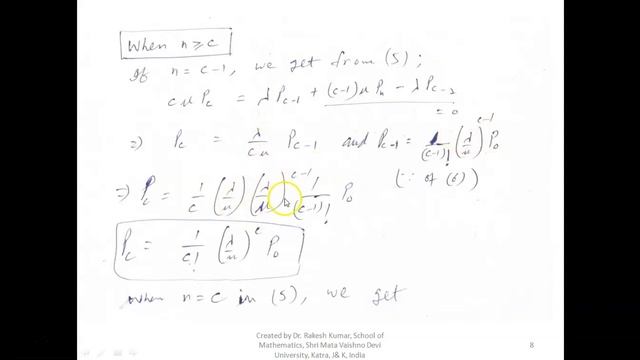 When n ≥ c
If n = c-1, we get from (5);
cμ P_c = λ P_{c-1} + (c-1)μ P_n - λ P_{c-2}
= 0
⇒ P_c = λ/cμ P_{c-1} and P_{c-1} = 1/(c-1)! (λ/μ)^{c-1} P_0
⇒ P_c = 1/c (λ/μ) (λ/μ)^{c-1} 1/(c-1)! P_0 (∵ of (6))
P_c = 1/c! (λ/μ)^c P_0
When n = c in (5), we get
Created by Dr. Rakesh Kumar, School of
Mathematics, Shri Mata Vaishno Devi
University, Katra, J& K, India
8